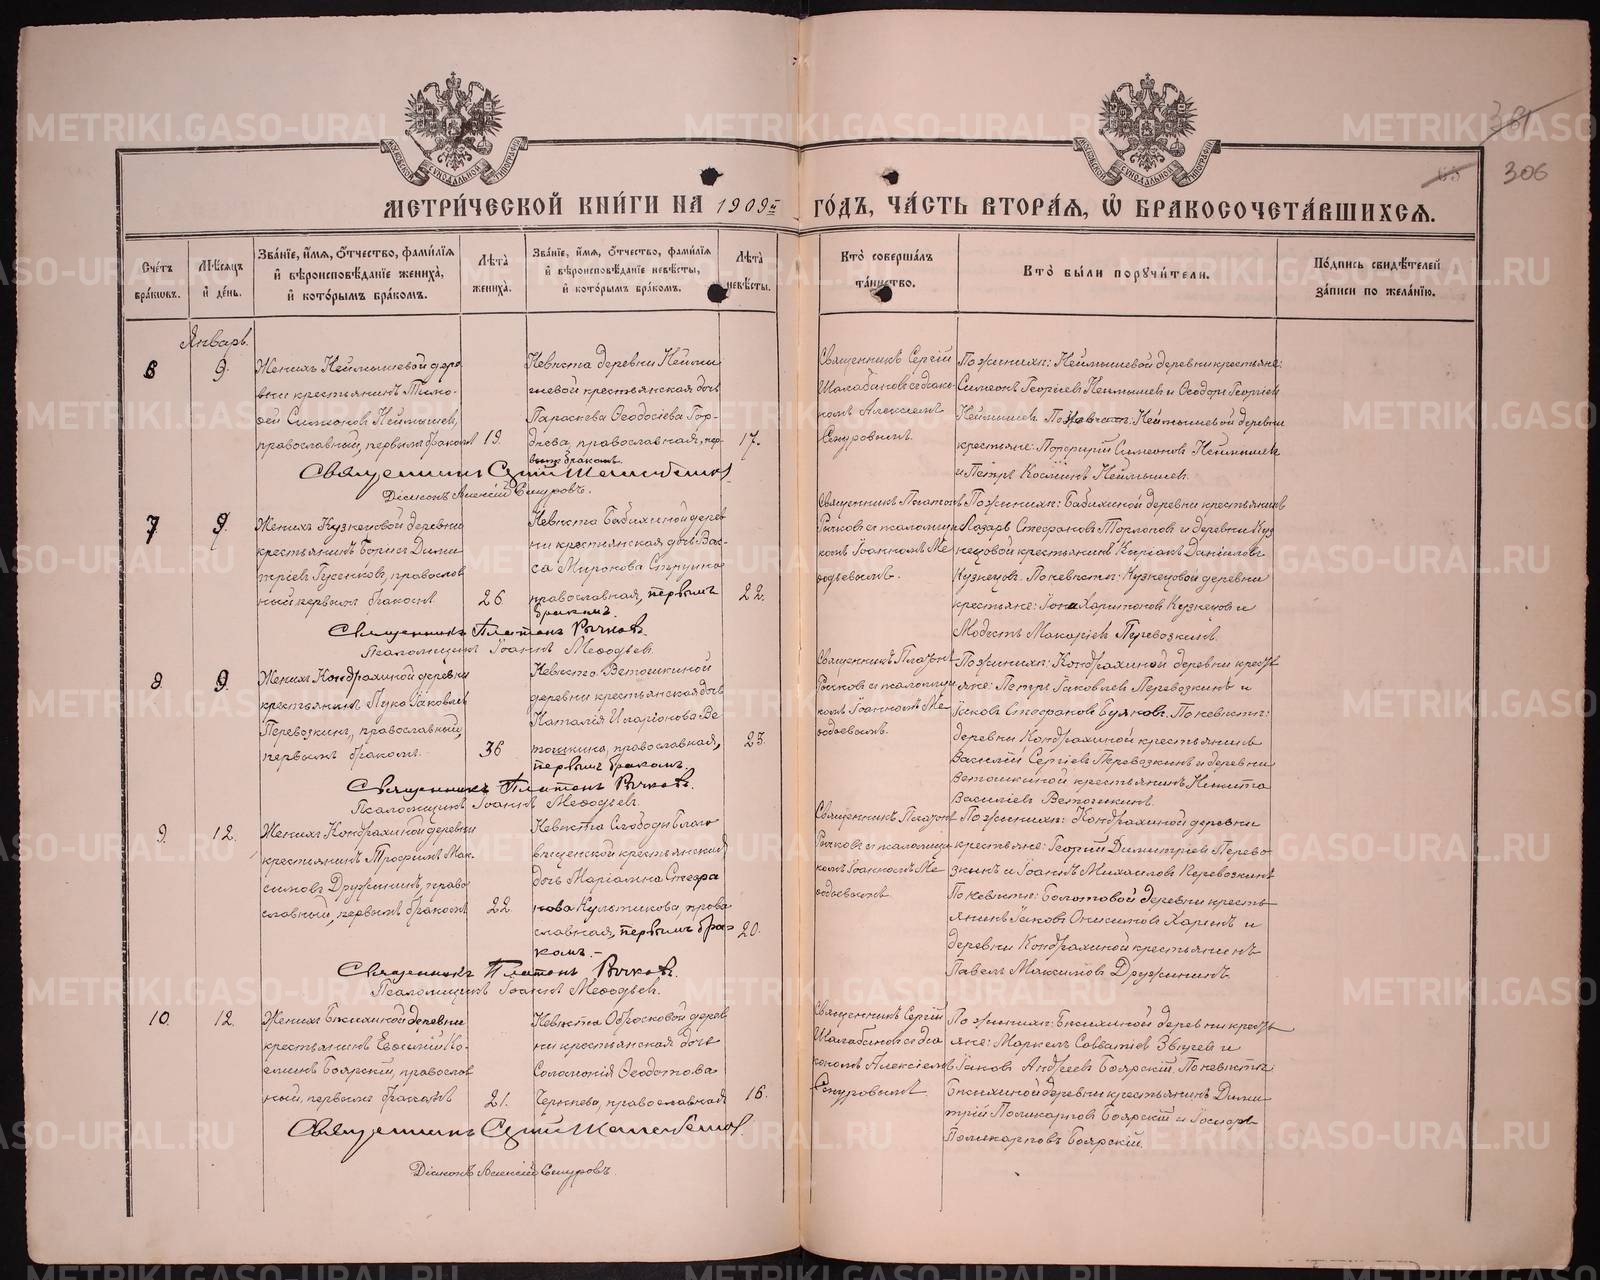 МЕТРИ́ЧЕСКОЙ КНИ́ГИ НА 1909й ГО́ДЪ, ЧА́СТЬ ВТОРА́Я, Ѡ҆ БРАКОСОЧЕТА́ВШИХСЯ.
381
65
306
Сче́тъ бра́кѡвъ.
Мѣ́сяцъ и҆ де́нь.
Зва́нїе, и҆́мя, ѻ҆́тчество, фами́лїя и҆ вѣроисповѣ́данїе жениха̀, и҆ кото́рымъ бра́комъ.
Лѣ́та жениха̀.
Зва́нїе, и҆́мя, ѻ҆́тчество, фами́лїя и҆ вѣроисповѣ́данїе невѣ́сты, и҆ кото́рымъ бра́комъ.
Лѣ́та невѣ́сты.
Кто̀ соверша́лъ та́инство.
Кто̀ бы́ли порꙋчи́тели.
По́дпись свидѣ́телей за́писи по жела́нїю.
Январь.
6
9.
Женихъ Неймышевой дере
вни крестьянинъ Тимо-
фей Симеоновъ Неймышевъ,
православный, первымъ бракомъ
19.
Невѣста деревни Нейми
шевой крестьянская дочь
Параскева Ѳеодосіева Гор-
дѣева, православная, пер-
вымъ бракомъ.
17.
Священникъ Сергій
Шалабановъ съ діако-
номъ Алексіемъ
Сепуровымъ.
По женихѣ: Неймышевой деревни крестьяне:
Симеонъ Георгіевъ Неймышевъ и Ѳеодоръ Георгіевъ
Неймышевъ. По невѣстѣ: Неймышевой деревни
крестьяне: Порфирій Симеоновъ Неймышевъ
и Петръ Косминъ Неймышевъ.
Священникъ Сергій Шалабановъ.
Діаконъ Алексій Сепуровъ.
7
9.
Женихъ Кузнецовой деревни
крестьянинъ Борисъ Дими
тріевъ Гусенковъ, православ
ный первымъ бракомъ.
26.
Невѣста Бабихиной дерев
ни крестьянская дочь Вас-
са Миронова Струнина
православная, первымъ
бракомъ.
22.
Священникъ Платонъ
Рычковъ съ псаломщи
комъ Іоанномъ Ме
ѳодьевымъ.
По женихѣ: Бабихиной деревни крестьянинъ
Лазарь Стефановъ Торлоповъ и деревни Куз
нецовой крестьянинъ Киріакъ Даніиловъ
Кузнецовъ. По невѣстѣ: Кузнецовой деревни
крестьяне: Іона Харитоновъ Кузнецовъ и
Модестъ Макаріевъ Перевозкинъ.
Священникъ Платонъ Рычковъ.
Псаломщикъ Іоаннъ Меѳодьевъ.
8
9.
Женихъ Кондрахиной деревни
крестьянинъ Лука Іаковлевъ
Перевозкинъ, православный,
первымъ бракомъ.
36
Невѣста Ветошкиной
деревни крестьянская дочь
Наталія Иларіонова Ве
тошкина, православная,
первымъ бракомъ.
23.
Священникъ Платонъ
Рычковъ съ псаломщи
комъ Іоанномъ Ме
ѳодьевымъ.
По женихѣ: Кондрахиной деревни кресть
яне: Петръ Іаковлевъ Перевозкинъ и
Іаковъ Стефановъ Буяковъ. По невѣстѣ:
деревни Кондрахиной крестьянинъ
Василій Сергіевъ Перевозкинъ и деревни
Ветошкиной крестьянинъ Никита
Василіевъ Ветошкинъ.
Священникъ Платонъ Рычковъ.
Псаломщикъ Іоаннъ Меѳодьевъ.
9.
12.
Женихъ Кондрахиной деревни
крестьянинъ Трофимъ Мак-
симовъ Дружининъ, право
славный, первымъ бракомъ
22.
Невѣста Слободы Благо
вѣщенской крестьянская
дочь Маріамна Стефа
нова Культикова, право
славная, первымъ бра-
комъ.-
20.
Священникъ Платонъ
Рычковъ съ псаломщи
комъ Іоанномъ Ме
ѳодьевымъ
По женихѣ: Кондрахиной деревни
крестьяне: Георгій Димитріевъ Перево
зкинъ и Іоаннъ Михаиловъ Перевозкинъ
По невѣстѣ: Болотовой деревни кресть
янинъ Іаковъ Онисимовъ Харинъ и
деревни Кондрахиной крестьянинъ
Павелъ Максимовъ Дружининъ.
Священникъ Платонъ Рычковъ.
Псаломщикъ Іоаннъ Меѳодьевъ.
10.
12.
Женихъ Бксихиной деревни
крестьянинъ Евѳимій Ко-
сминъ Боярскій, православ
ный, первымъ бракомъ
21.
Невѣста Обросковой дерев
ни крестьянская дочь
Соломонія Ѳеодотова
православная
16.
Священникъ Сергій
Шалабановъ съ діа
кономъ Алексіемъ
Сепуровымъ.
По женихѣ: деревни кресть
яне: Маркелъ Савватіевъ Звыревъ и
Іаковъ Андреевъ Боярскій. По невѣстѣ:
деревни крестьянинъ Дими
трій Поликарповъ Боярскій и
Поликарповъ Боярскій.
Священникъ Сергій Шалабановъ.
Діаконъ Алексій Сепуровъ.
METRIKI.GASO-URAL.RU